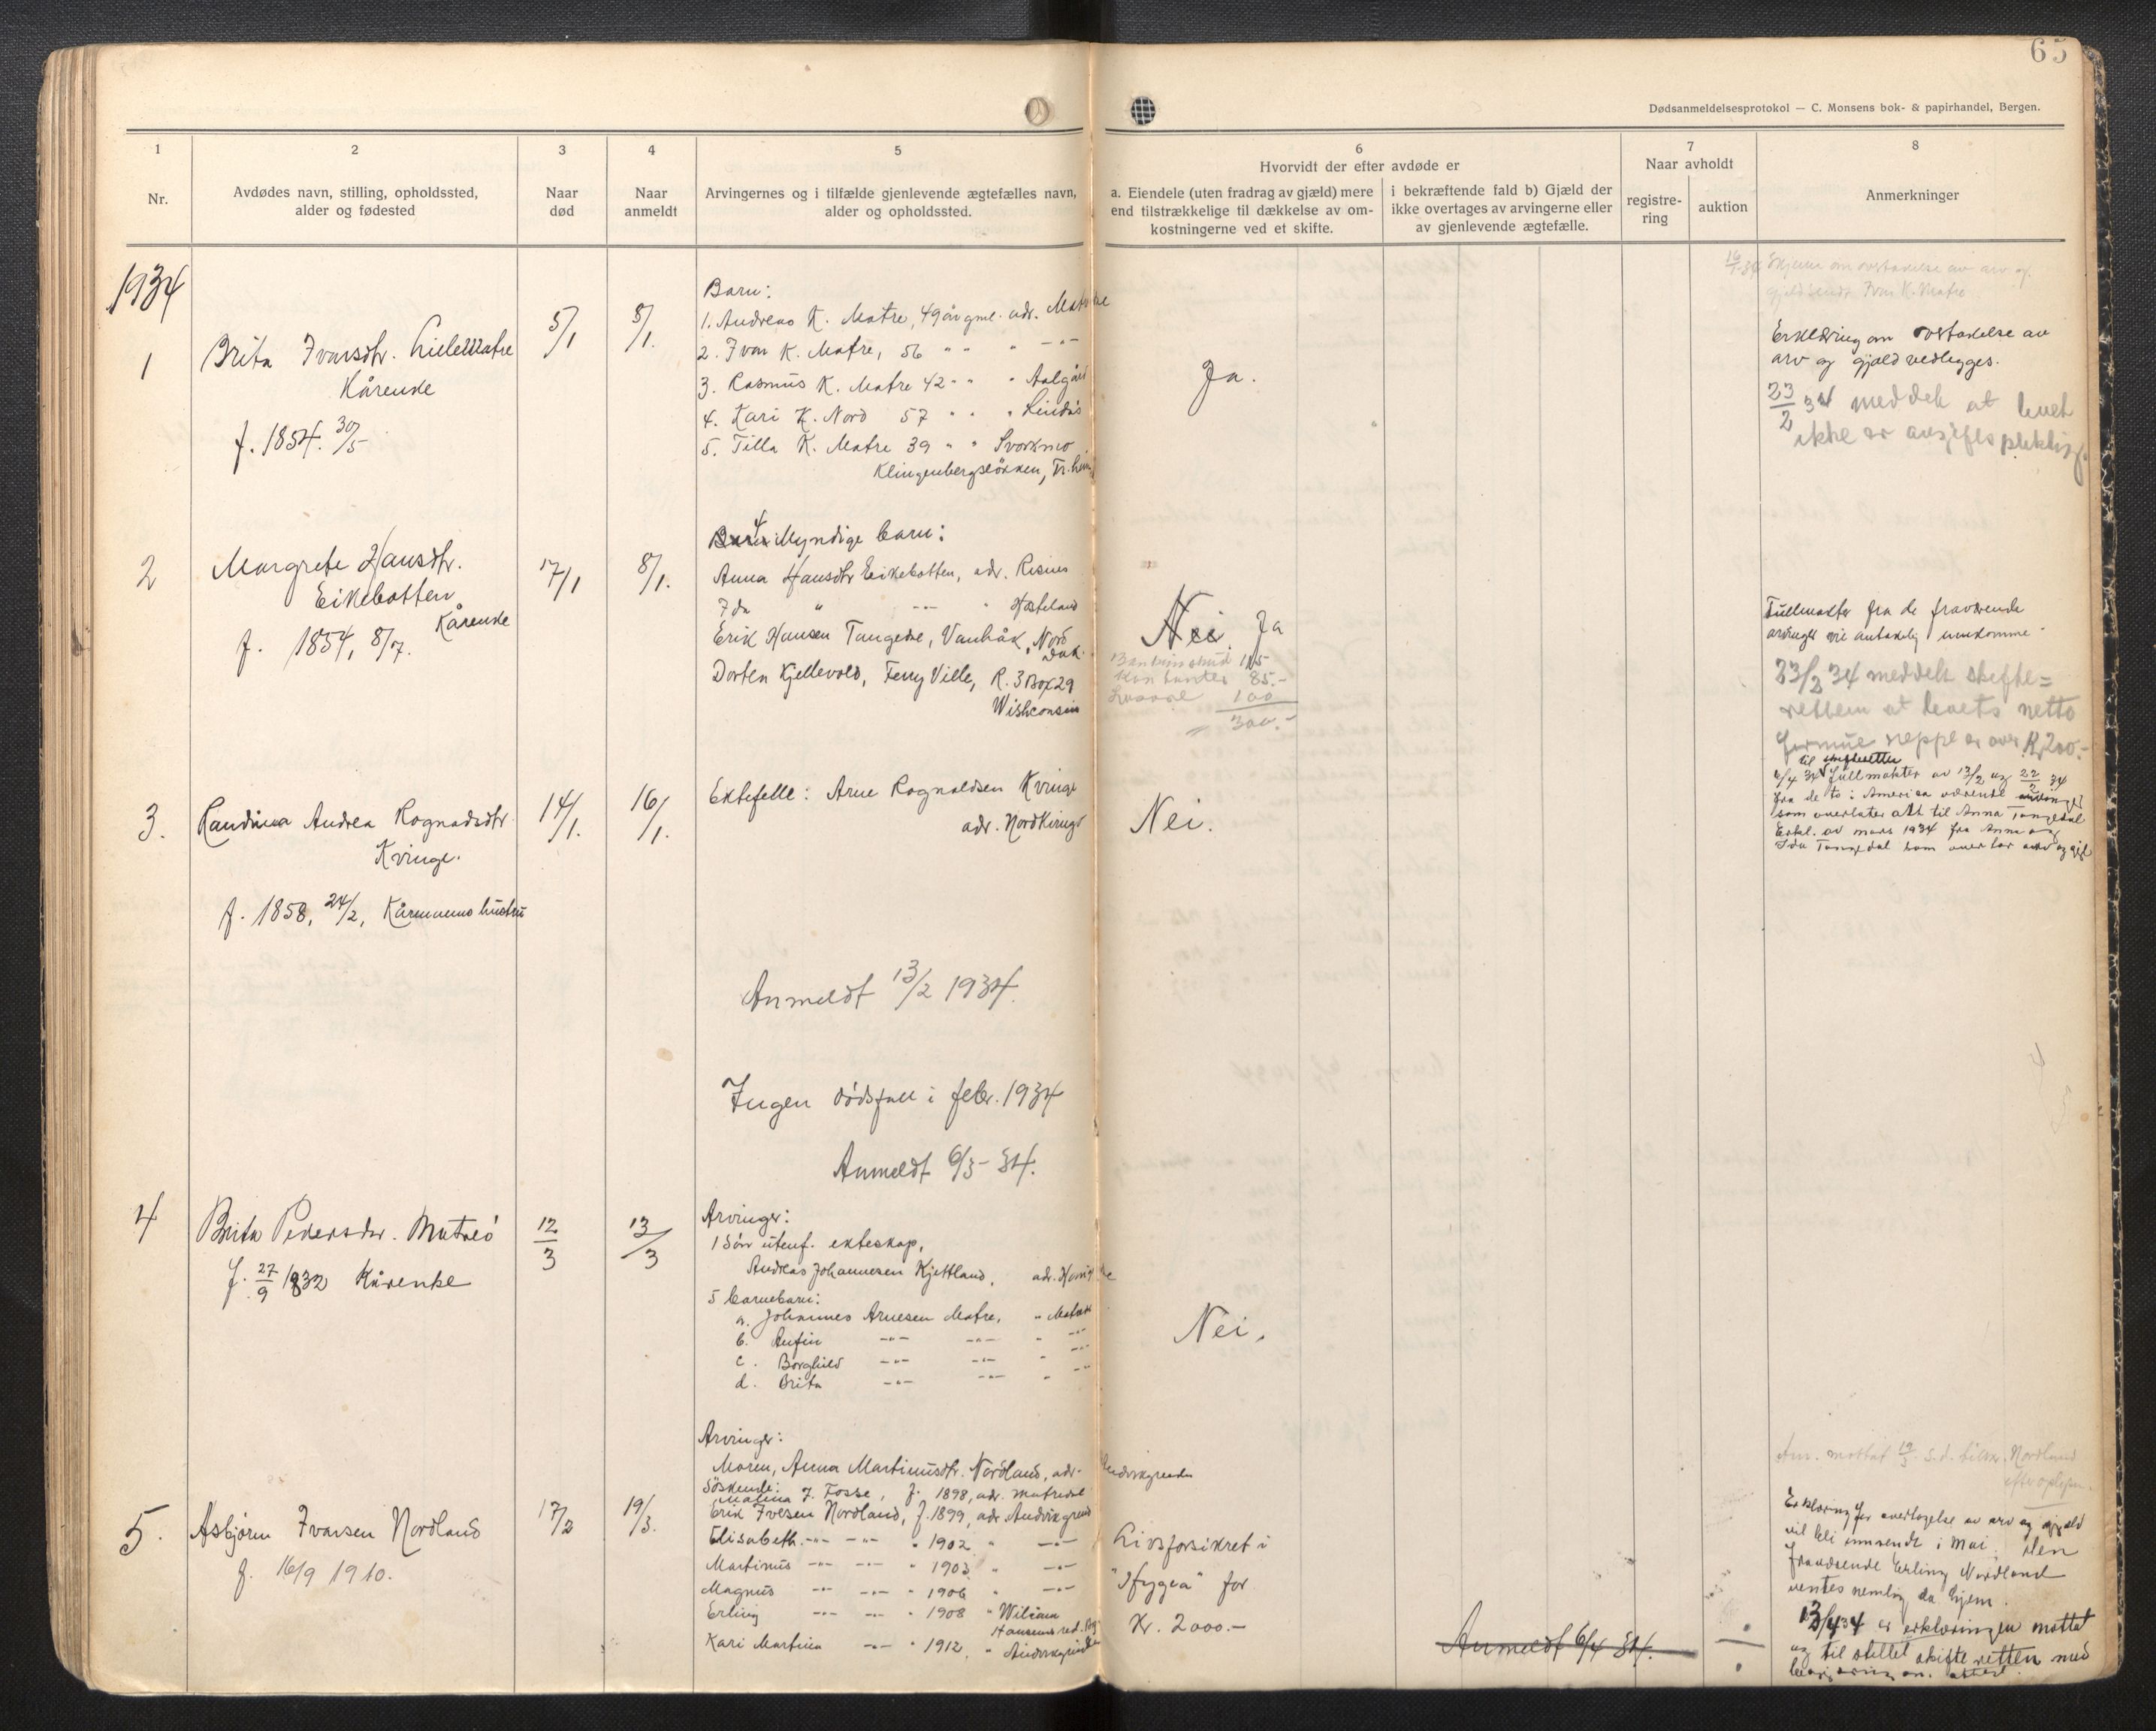 65
Dødsanmeldelsesprotokol — C. Monsens bok- & papirhandel, Bergen.
1
2
3
4
5
6
7
8
Nr.
Avdødes navn, stilling, opholdssted,
alder og fødested
Naar
død
Naar
anmeldt
Arvingernes og i tilfælde gjenlevende ægtefælles navn,
alder og opholdssted.
Hvorvidt der efter avdøde er
a. Eiendele (uten fradrag av gjæld) mere
end tilstrækkelige til dækkelse av om-
kostningerne ved et skifte.
i bekræftende fald b) Gjæld der
ikke overtages av arvingerne eller
av gjenlevende ægtefælle.
Naar avholdt
registre-
ring
auktion
Anmerkninger
1934
1
Brita Ivarsdtr. LilleMatre
Kårenke
f. 1854. 30/5
5/1
8/1.
Barn:
1. Andreas K. Matre, 49 år gml. adr.
2. Ivar K. Matre, 56 " " " -"-
3. Rasmus K. Matre 42 " " " Aalgård
4. Kari K. Nord 57 " " " Lindås
5. Tilla K. Matre 39 " " Svorkmo
Klingenbergsløkken, Tr.heim
Ja.
16/1-34 Skjema om overtakelse av arv og
gjeld sendt Ivar K. Matre
Erklæring om overtakelse av
arv og gjæld vedlegges.
23/2 34 meddelt at boet
ikke er avgiftspliktig.
2
Margrete Hansdtr.
Eikebotten
Kårenke
f. 1854, 8/7.
17/1
8/1.
4 Myndige barn:
Anna Hansdtr Eikebotten, adr. Risnes
Ida " -"- " Hosteland
Erik Hansen Tangedal, , Nord
Dak.
Dorten Kjellevold, Ferry Ville, R. 3 Box 29
Wishconsin
Nei. Ja
115
85.-
100
300.-
Fullmakter fra de fraværende
arvinger vil antakelig innkomme.
23/2 34 meddelt skifte=
retten at boets netto
formue neppe er over Kr 200.-
til skifteretten
6/4 34 fullmakter av 13/2 og 22/2 34
fra de to i Amerika værende arvinger
som overlater alt til Anna Tangedal
Erkl. av mars 1934 fra Anna og
Ida Tangedal som overtar arv og gjel
3.
Randina Andrea Rognaldsdtr.
Kvinge.
f. 1858, 24/2, Kårmanns hustru
14/1.
16/1.
Ektefelle: Arne Rognaldsen Kvinge
adr. Nordkvinge
Nei.
Anmeldt 13/2 1934.
Ingen dødsfall i febr. 1934
Anmeldt 6/3- 34.
4
Brita Pedersdtr. Matre
f. 27/9 1832 Kårenke
12/3
13/3
Arvinger:
1 Sønn utenf. ekteskap,
Andreas Johannesen Kjetland, adr.
5 barnebarn:
a. Johannes Arnesen Matre, "
b. Anfin -"- -"- " -"-
c. Borghild -"- -"- " -"-
d. Brita -"- -"- " -"-
Nei.
5.
Asbjørn Ivarsen Nordland
f. 16/9 1910.
17/2
19/3.
Arvinger:
Moren, Anna Martinusdtr. Nordland, adr. Andvikgrenda
Søskende:
Malina I. Fosse, f. 1898, adr. Matredal
Erik Ivarsen Nordland, f. 1899, adr Andvikgrend
Elisabeth -"- -"- " 1902 " -"-
Martinus -"- -"- " 1903 " -"-
Magnus -"- -"- " 1906 " -"-
Erling -"- -"- " 1908 " Wiliam
Hansens red.
Kari Martina -"- " 1912, " Andvikgrenda
Livsforsikret i
"Hygea" for
Kr. 2000.-
Anmeldt 6/4 34.
Nordland
Erklæring for overtagelse av arv og gjæld
vil bli innsendt i Mai, den
fraværende Erling Nordland
ventes nemlig da hjem.
13/4 34 er erklæringen mottat
og til stillet skifteretten med